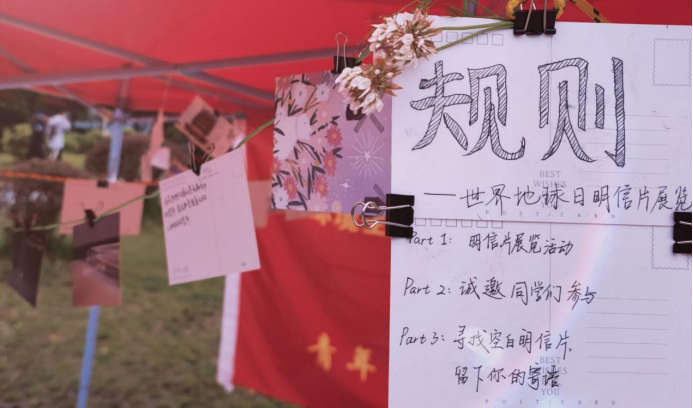 规则
BEST
WISHES
——世界地球日明信片展览
POSTCARD
Part 1: 明信片展览活动
Part 2: 诚邀同学们参与
Part 3: 寻找空白明信片,
留下你的寄语
BEST
YOU
POSTCARD
青年